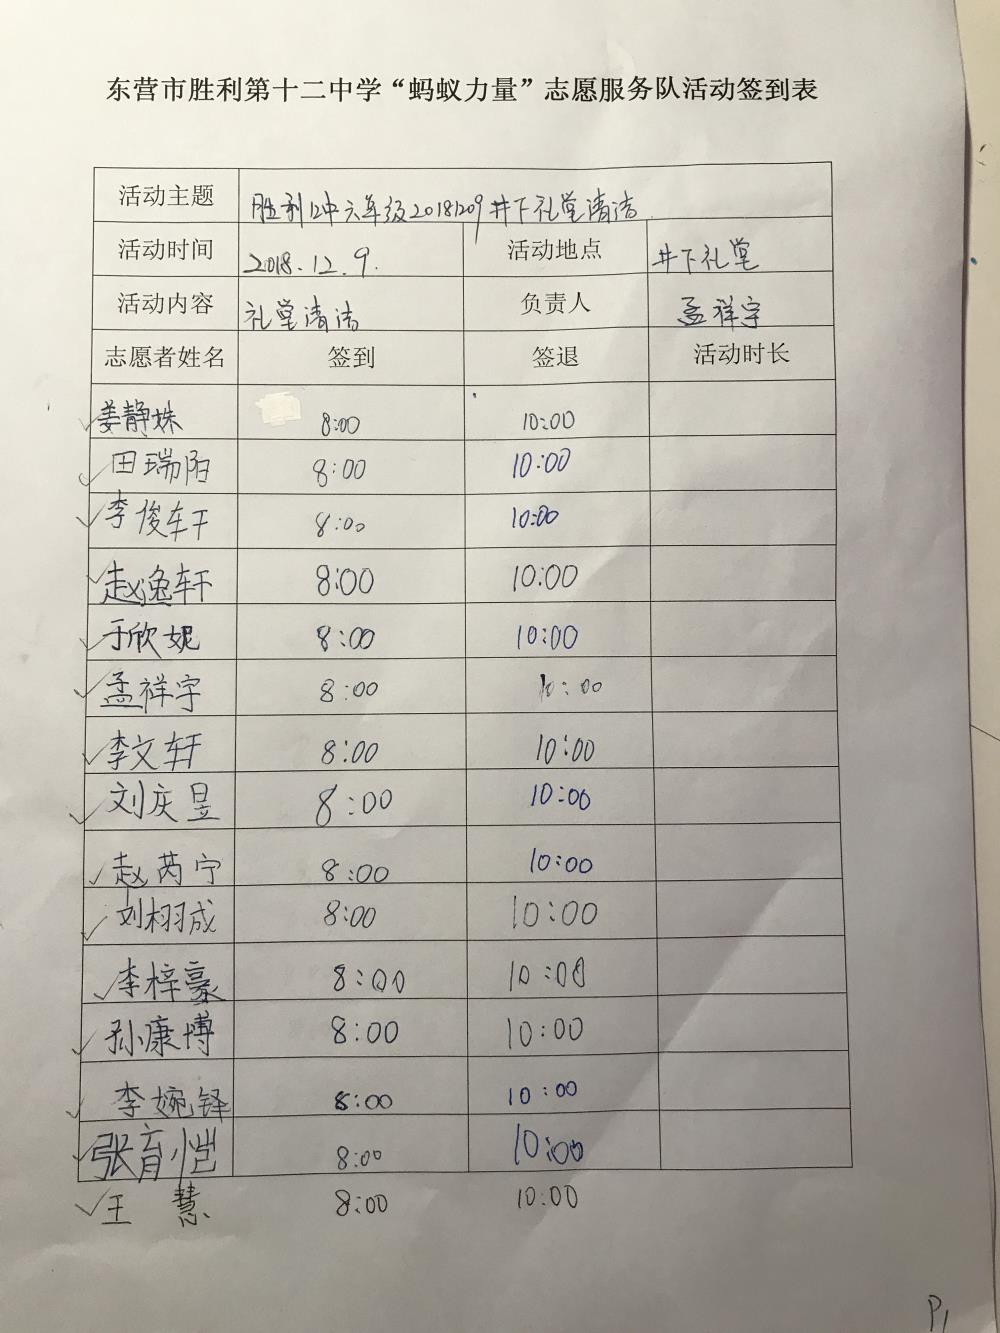 东营市胜利第十二中学“蚂蚁力量”志愿服务队活动签到表
活动主题 胜利12中六年级20181209井下礼堂清洁
活动时间 2018.12.9. 活动地点 井下礼堂
活动内容 礼堂清洁 负责人 孟祥宇
志愿者姓名 签到 签退 活动时长
姜静姝 8:00 10:00
田瑞阳 8:00 10:00
李俊轩 8:00 10:00
赵逸轩 8:00 10:00
于欣妮 8:00 10:00
孟祥宇 8:00 10:00
李文轩 8:00 10:00
刘庆昱 8:00 10:00
赵芮宁 8:00 10:00
刘栩成 8:00 10:00
李梓豪 8:00 10:00
孙康博 8:00 10:00
李婉铎 8:00 10:00
张育恺 8:00 10:00
王慧 8:00 10:00
P1